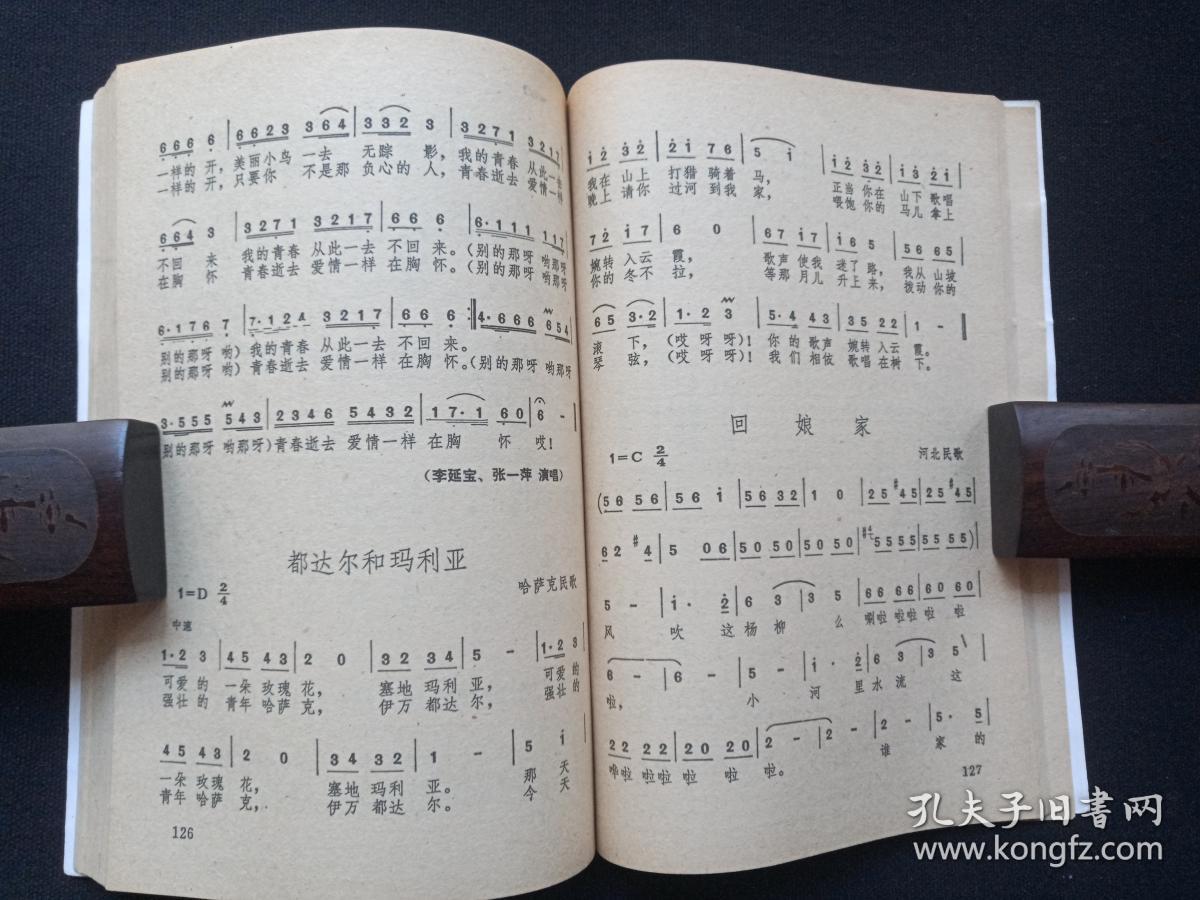 666 6 | 6623 364 | 332 3 | 3271 321
一样的开，美丽小鸟 一去 无踪 影，我的青春 从此一去
一样的开，只要你 不是那 负心的 人，青春逝去 爱情一样
664 3 | 3271 3217 | 66 6 | 6·111 117
不回 来 我的青春 从此一去 不回 来。(别的那呀 哟那那
在胸 怀 青春逝去 爱情一样 在胸 怀。(别的那呀 哟那那
6·176 7 | 7·124 3217 | 66 6 :‖ 4·666 654
别的那呀 哟)我的青春 从此一去 不回 来。
别的那呀 哟)青春逝去 爱情一样 在胸 怀。(别的那呀 哟那呀
3·555 543 | 2346 5432 | 17·1 60 | 6 -
别的那呀 哟那呀)青春逝去 爱情一样 在胸 怀 哎！
(李延宝、张一萍 演唱)
都达尔和玛利亚
1=D 2/4
哈萨克民歌
中速
1·2 3 | 45 43 | 2 0 | 32 34 | 5 - | 1·2 3
可爱的 一朵 玫瑰 花， 塞地 玛利 亚， 可爱的
强壮的 青年 哈萨 克， 伊万 都达 尔， 强壮的
45 43 | 2 0 | 34 32 | 1 - | 5 i
一朵 玫瑰 花， 塞地 玛利 亚。 那 天
青年 哈萨 克， 伊万 都达 尔。 今 天
126
i2 32 | 2i 76 | 5 i | i2 32 | i3 2i
我在 山上 打猎 骑着 马， 正当 你在 山下 歌唱
晚上 请你 过河 到我 家， 喂饱 你的 马儿 拿上
72 i7 | 6 0 | 67 i7 | i6 5 | 56 65
婉转 入云 霞， 歌声 使我 迷了 路，我从 山坡
你的 冬不 拉， 等那 月儿 升上 来，拨动 你的
65 3·2 | 1·2 3 | 5·4 43 | 35 22 | 1 - ‖
滚 下，(哎 呀呀)！你 的 歌声 婉转 入云 霞。
琴 弦，(哎 呀呀)！我 们 相依 歌唱 在树 下。
回 娘 家
1=C 2/4
河北民歌
(56 56 | 56 i | 56 32 | 1 0 | 25 #45 | 25 #45
62 #4 | 5 06 | 50 50 | 50 50 | 55 55 | 55 55)
5 - | i· 2 | 6 3 | 3 5 | 66 66 | 60 60
风 吹 这 杨 柳 么 唰啦 啦啦 啦 啦
6 - | 6 - | 5 · | i · 2 | 6 3 | 5
啦， 小 河 里 水 流 这
22 22 | 20 20 | 2 - | 2 - | 2 - | 5· 5
哗啦 啦啦 啦 啦 啦。 谁 家 的
127
孔夫子旧书网
www.kongfz.com